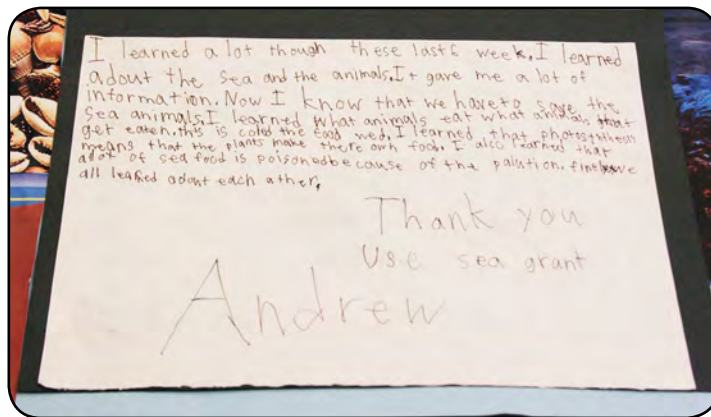 I learned a lot though these last 6 week. I learned
adout the sea and the animals. It gave me a lot of
information. Now I know that we have to save the
sea animals. I learned what animals eat what animals that
get eaten. this is coled the food wed. I learned that photosynthesis
means that the plants make there own food. I also learned that
alot of sea food is poisoned because of the palution. we
all learned adout each ather.
Thank you
Usc sea grant
Andrew